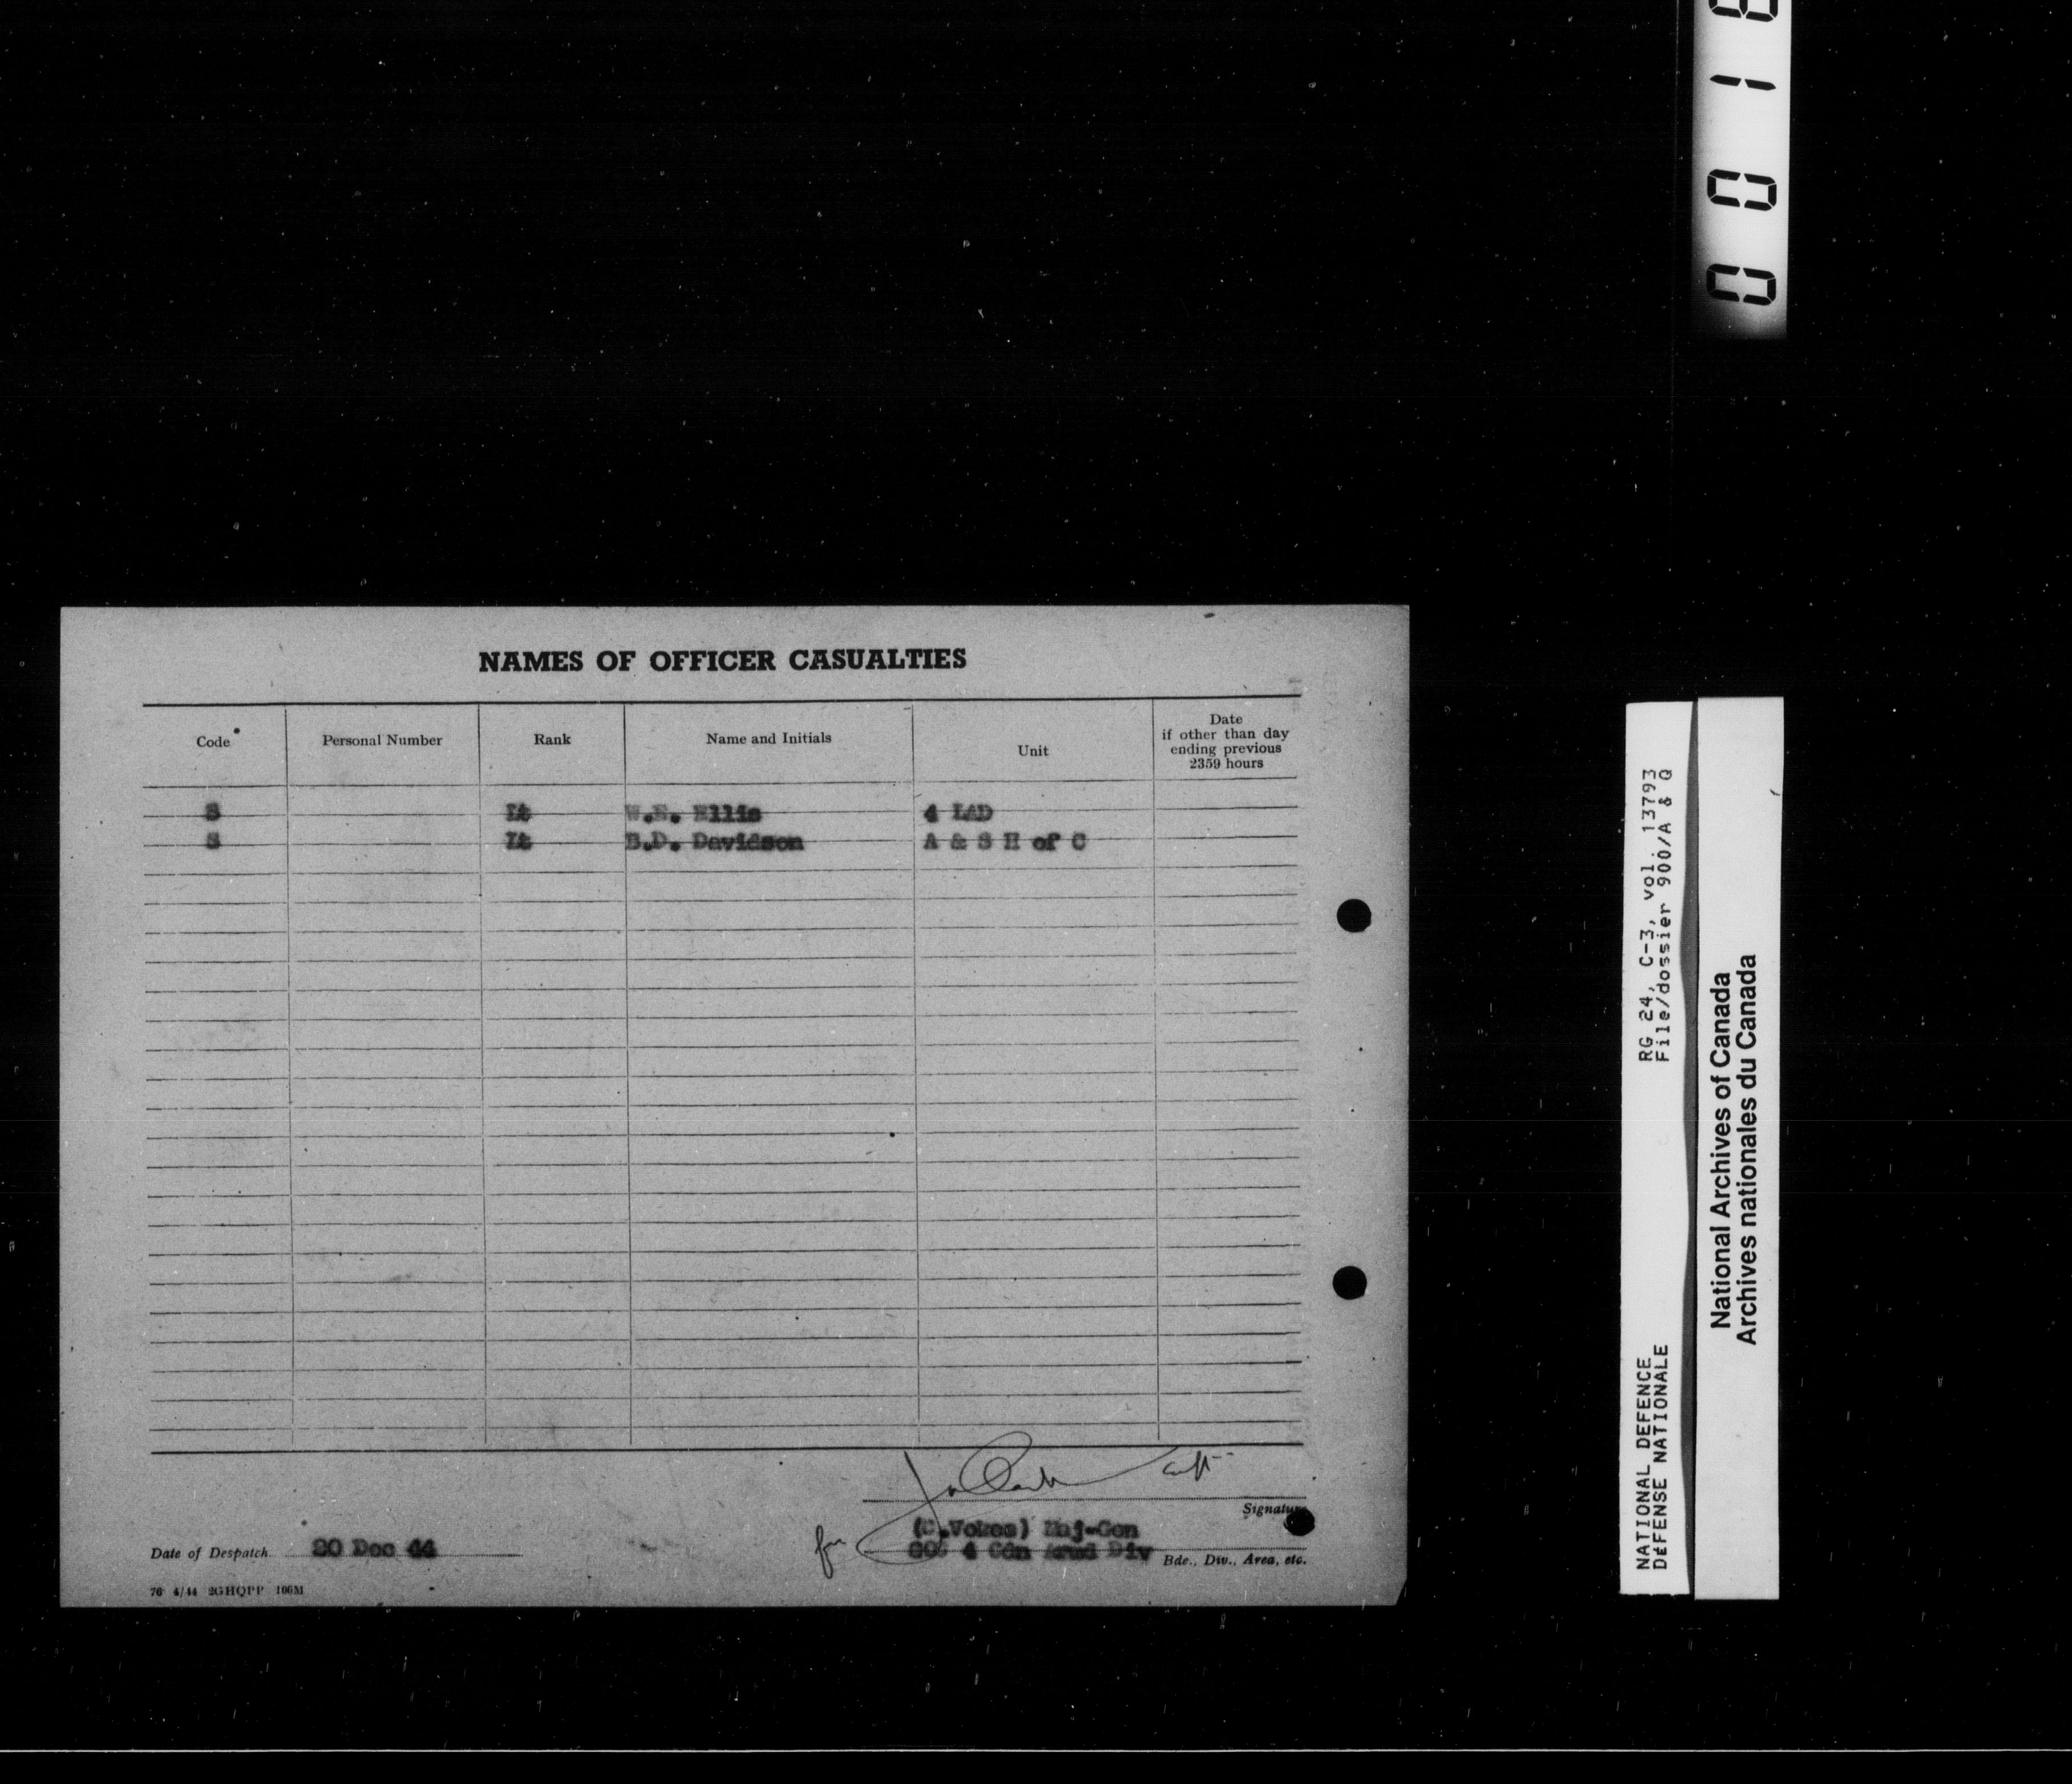 NAMES OF OFFICER CASUALTIES
Code Personal Number Rank Name and Initials Unit Date if other than day ending previous 2359 hours
S Lt W.E. Ellis 4 LAD
S Lt B.D. Davidson A & S H of C
Capt
Signature
for (C.Vokes) Maj-Gen
GOC 4 Cdn Armd Div Bde., Div., Area, etc.
Date of Despatch 20 Dec 44
76 4/44 2GHQPP 100M
RG 24, C-3, vol. 13793
File/dossier 900/A & Q
NATIONAL DEFENCE
DÉFENSE NATIONALE
National Archives of Canada
Archives nationales du Canada
0 0 1